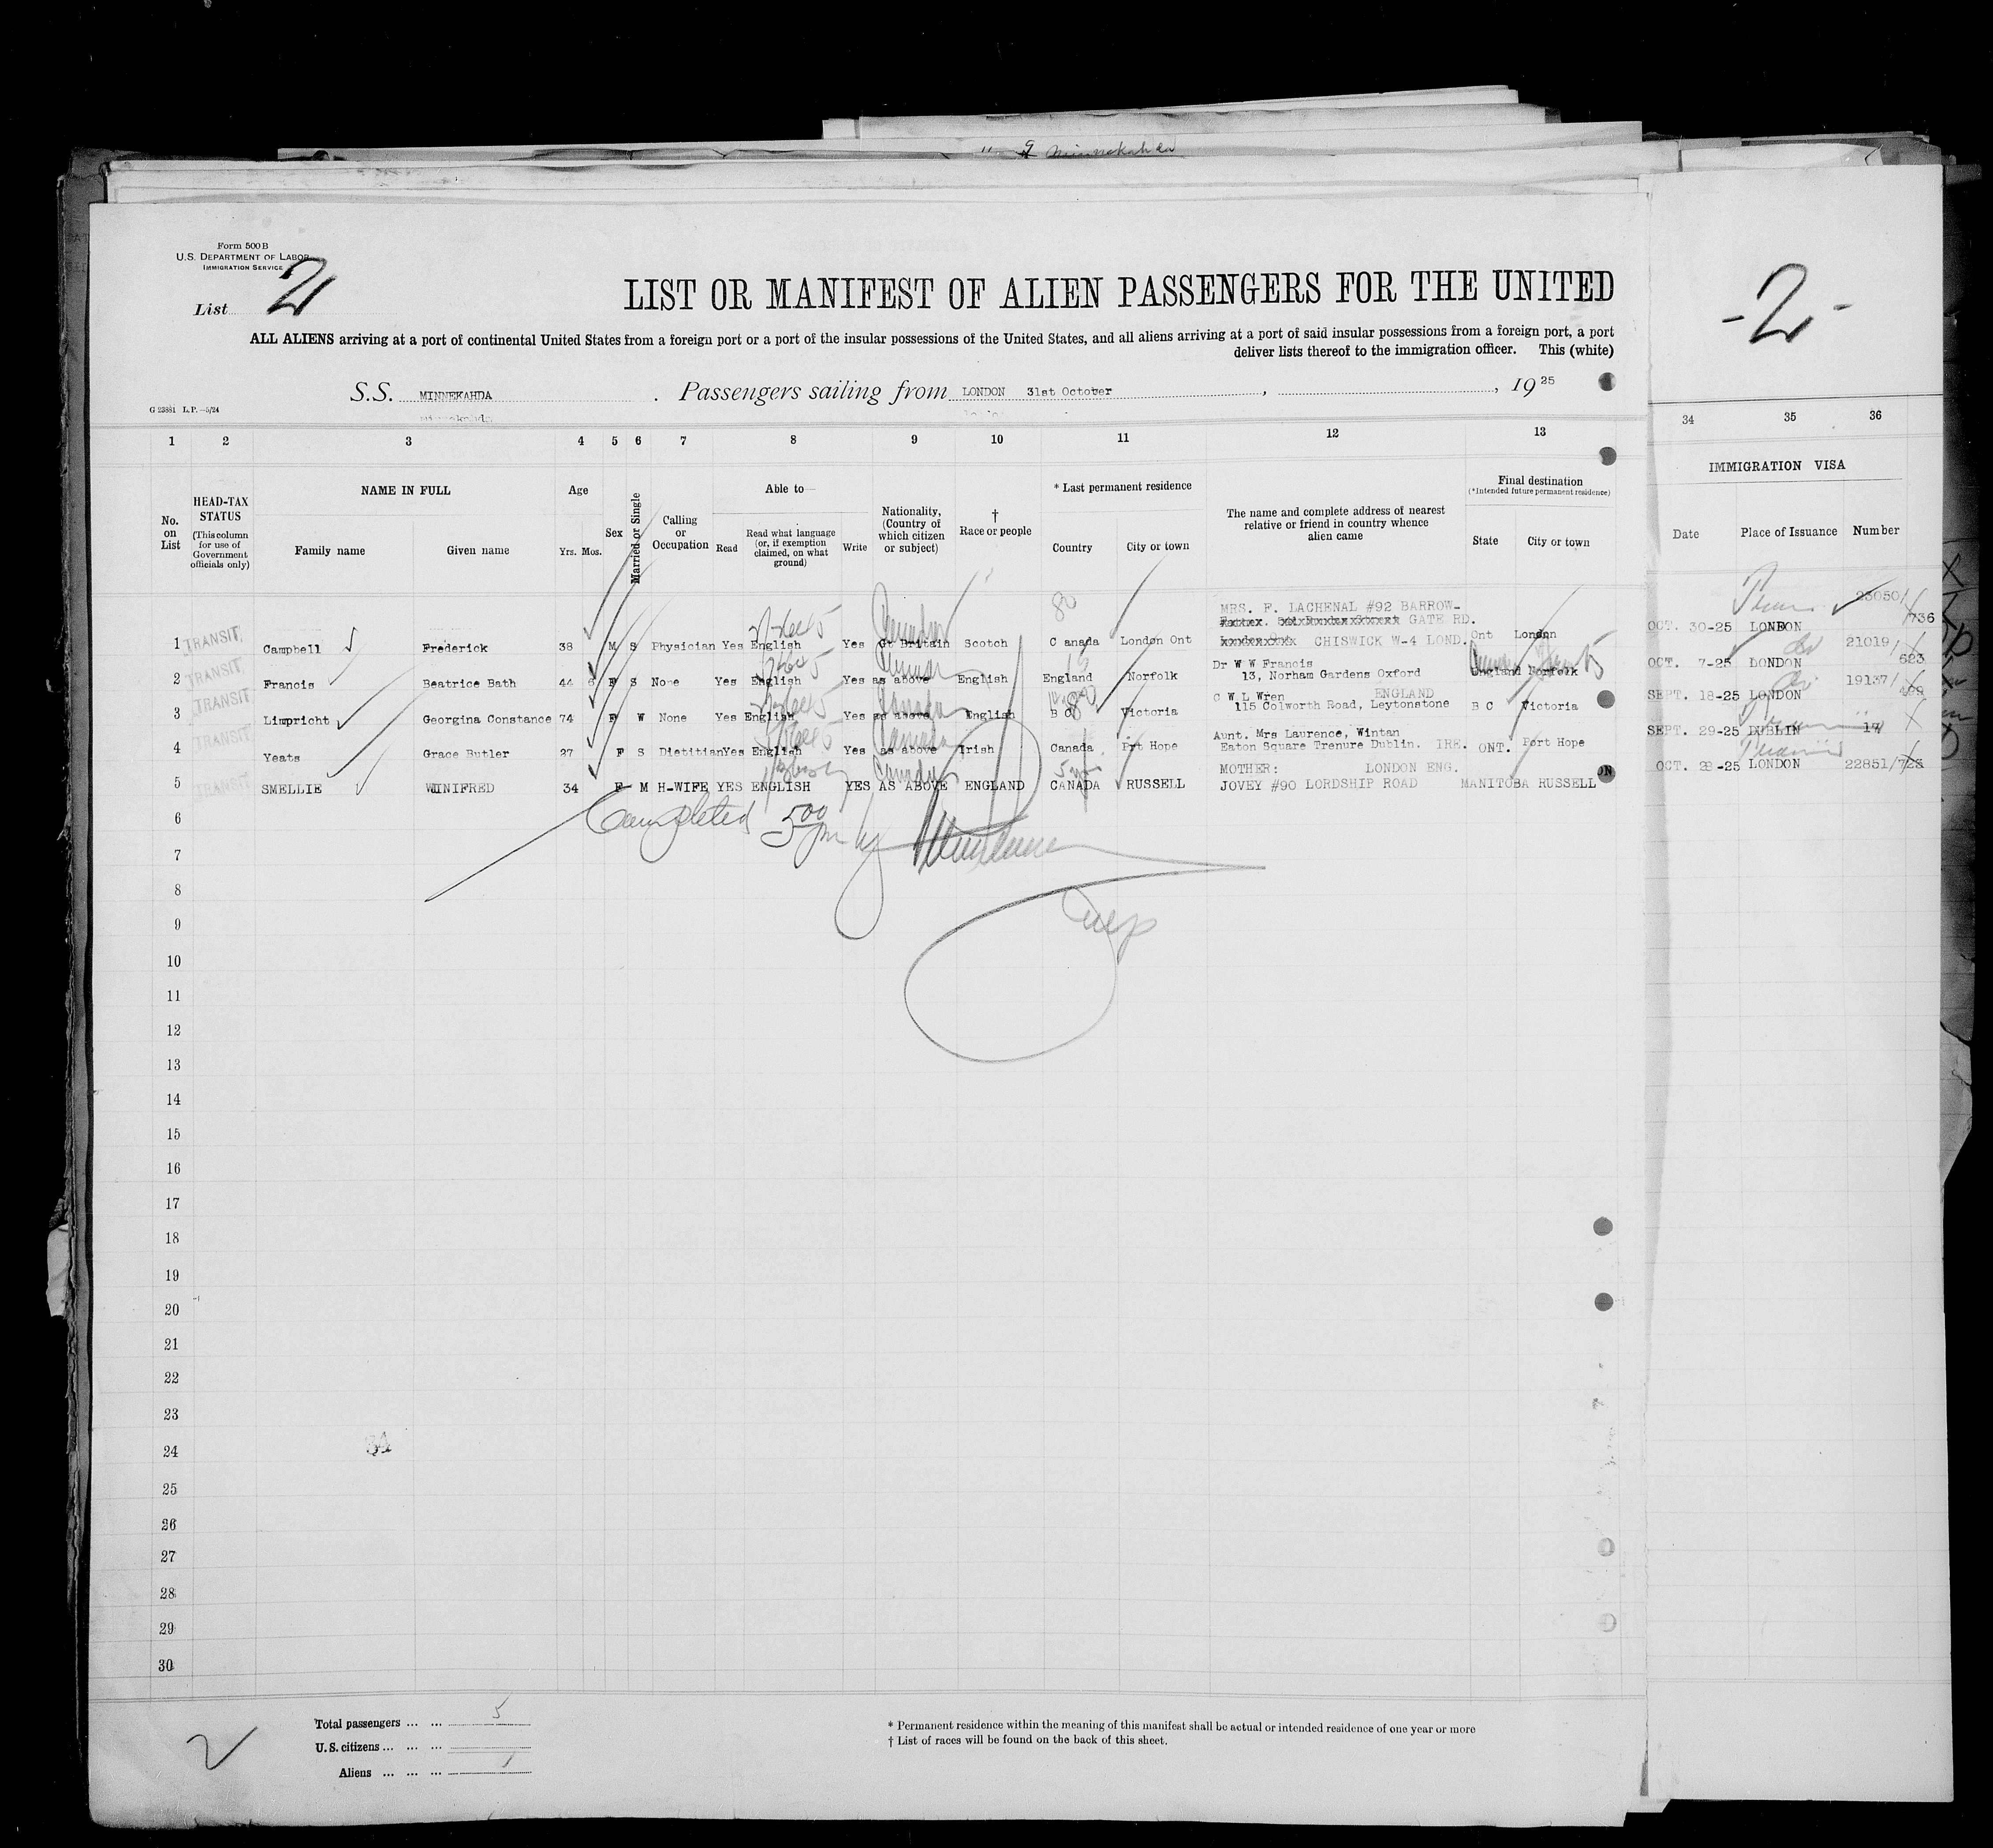 " 9 Minnekahda
Form 500 B
U.S. DEPARTMENT OF LABOR
IMMIGRATION SERVICE
List 2
LIST OR MANIFEST OF ALIEN PASSENGERS FOR THE UNITED
-2-
ALL ALIENS arriving at a port of continental United States from a foreign port or a port of the insular possessions of the United States, and all aliens arriving at a port of said insular possessions from a foreign port, a port
deliver lists thereof to the immigration officer. This (white)
S.S. MINNEKAHDA . Passengers sailing from LONDON 31st October , , 19 25
G 23881 L.P.—5/24
1 2 3 4 5 6 7 8 9 10 11 12 13 34 35 36
No. on List
HEAD-TAX STATUS
(This column for use of Government officials only)
NAME IN FULL
Family name Given name
Age
Yrs. Mos.
Sex
Married or Single
Calling or Occupation
Able to—
Read
Read what language (or, if exemption claimed, on what ground)
Write
Nationality, (Country of which citizen or subject)
†
Race or people
* Last permanent residence
Country City or town
The name and complete address of nearest relative or friend in country whence alien came
Final destination
(*Intended future permanent residence)
State City or town
IMMIGRATION VISA
Date Place of Issuance Number
MRS. F. LACHENAL #92 BARROW-
GATE RD.
1 TRANSIT. Campbell Frederick 38 M S Physician Yes English Yes Gt Britain Scotch Canada London Ont CHISWICK W-4 LOND. Ont London OCT. 30-25 LONDON 23050/736
2 TRANSIT. Francis Beatrice Bath 44 6 F S None Yes English Yes as above English England Norfolk Dr W W Francis England Norfolk OCT. 7-25 LONDON 21019/623
13, Norham Gardens Oxford
ENGLAND
3 TRANSIT. Limpricht Georgina Constance 74 F W None Yes English Yes as above English B C Victoria C W L Wren B C Victoria SEPT. 18-25 LONDON 19137/499
115 Colworth Road, Leytonstone
4 TRANSIT. Yeats Grace Butler 27 F S Dietitian Yes English Yes as above Irish Canada Prt Hope Aunt. Mrs Laurence, Wintan ONT. Port Hope SEPT. 29-25 DUBLIN 17
Eaton Square Trenure Dublin. IRE.
MOTHER: LONDON ENG.
5 TRANSIT SMELLIE WINIFRED 34 F M H-WIFE YES ENGLISH YES AS ABOVE ENGLAND CANADA RUSSELL JOVEY #90 LORDSHIP ROAD MANITOBA RUSSELL OCT. 28-25 LONDON 22851/728
Completed 500
6
7
8
9
10
11
12
13
14
15
16
17
18
19
20
21
22
23
24
25
26
27
28
29
30
2
Total passengers ... ... 5
U.S. citizens ... ... ...
Aliens ... ... ...
* Permanent residence within the meaning of this manifest shall be actual or intended residence of one year or more
† List of races will be found on the back of this sheet.